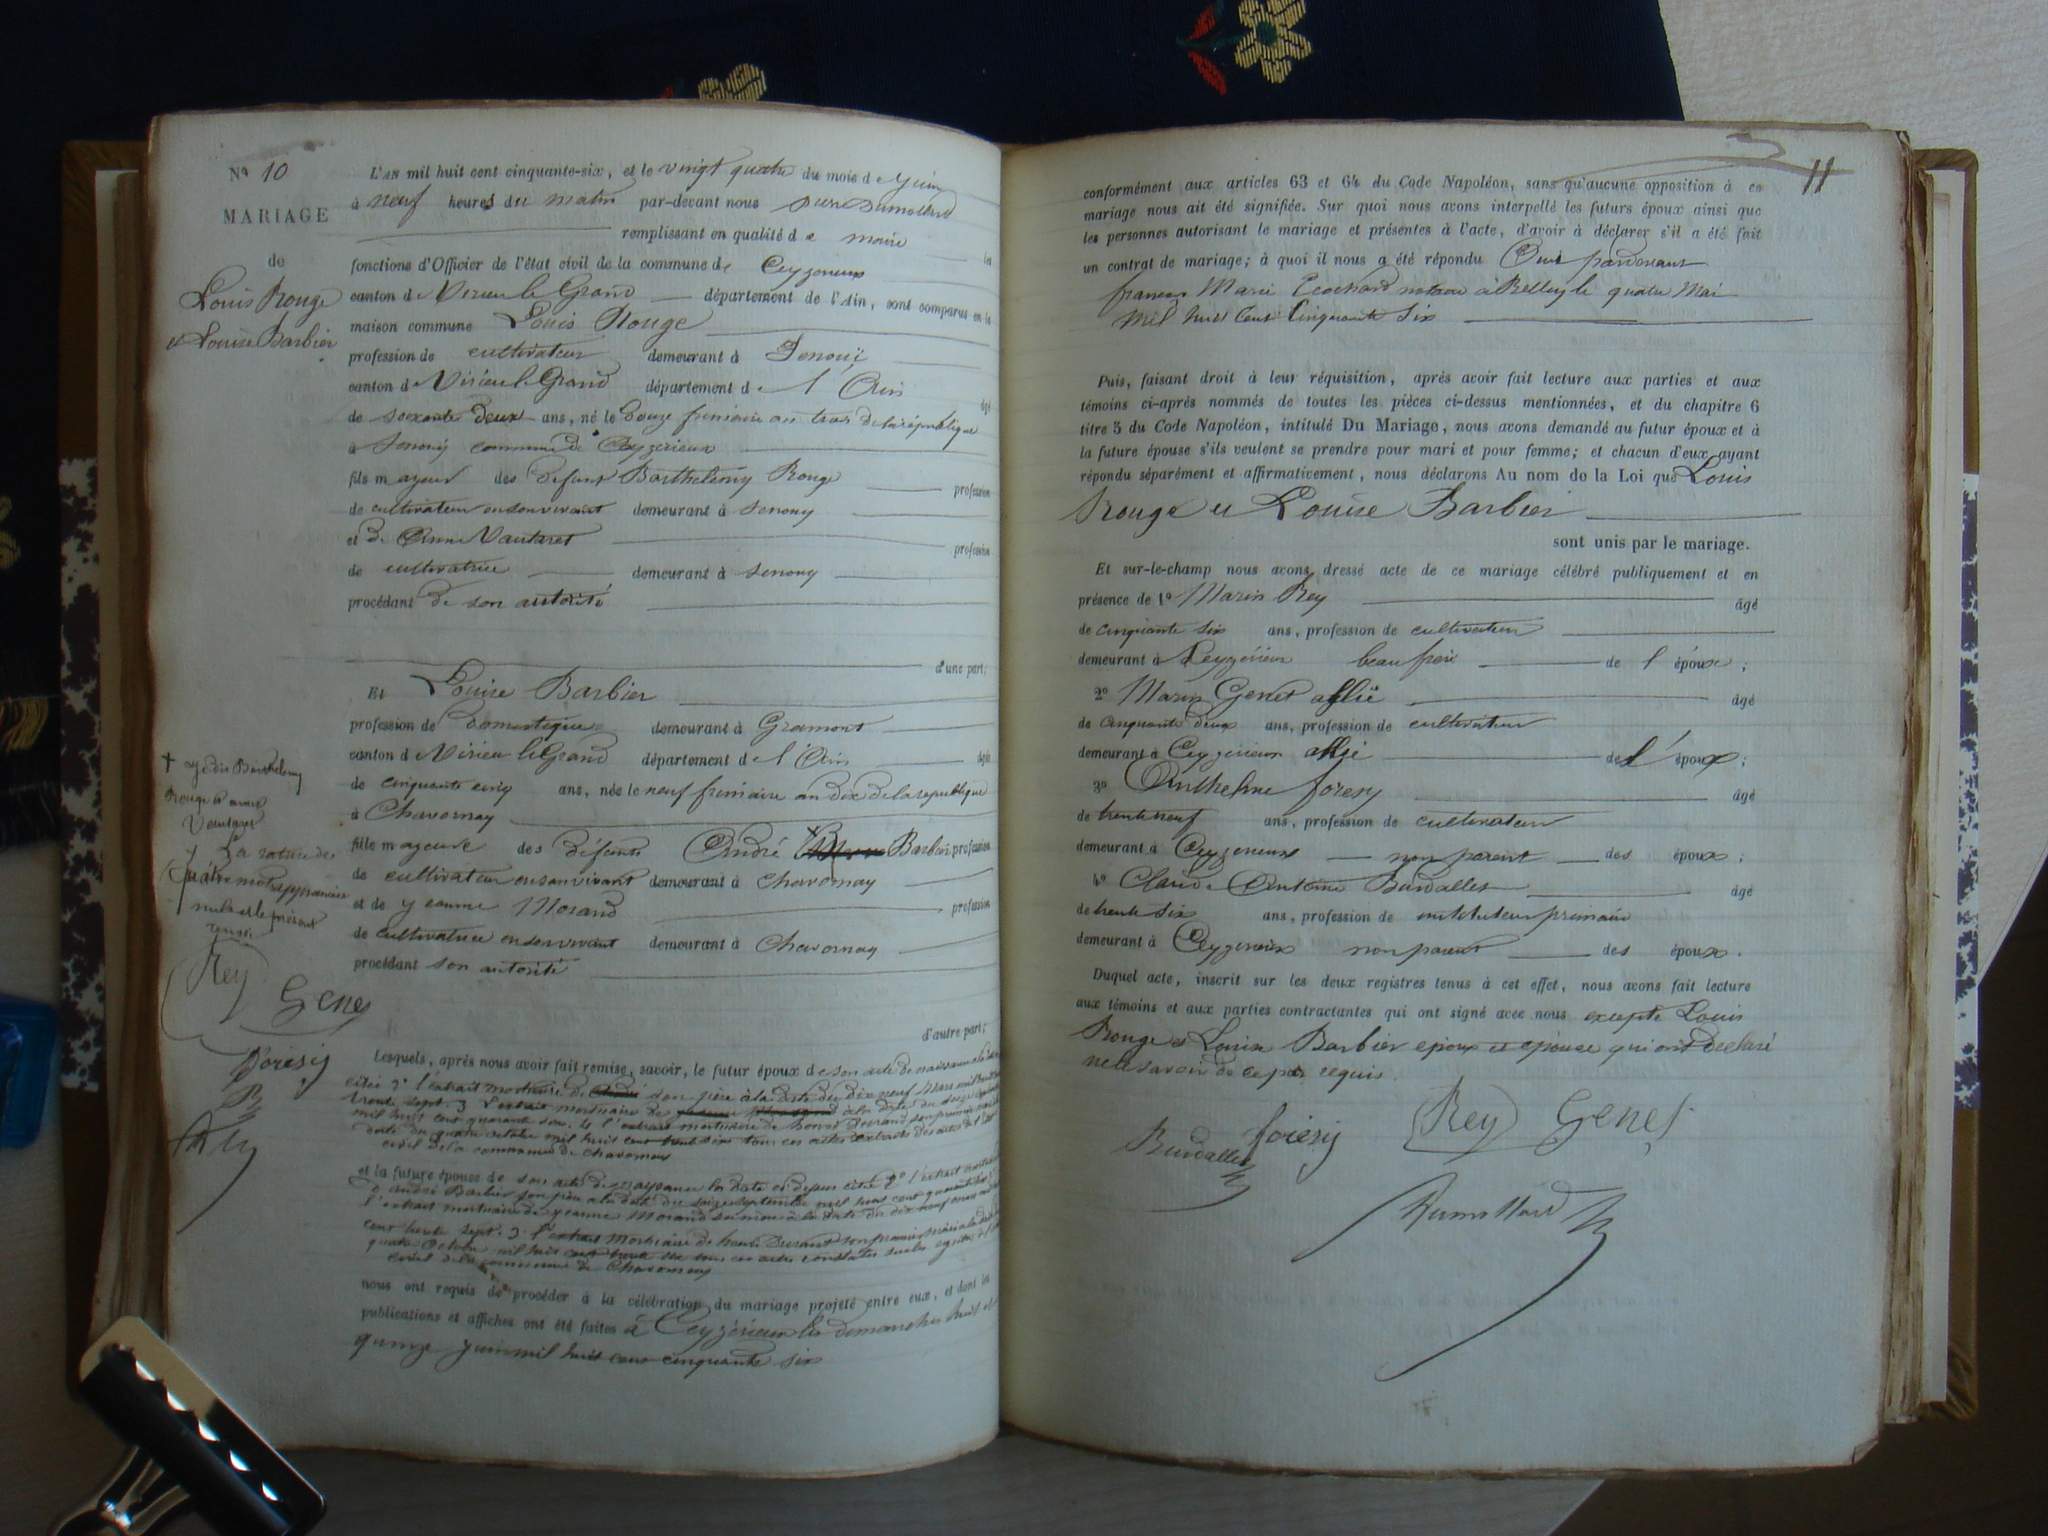 Nº 10
MARIAGE
de
Louis Rouge
et Louise Barbier
L'AN mil huit cent cinquante-six, et le vingt quatre du mois de juin
à neuf heures du matin par-devant nous
remplissant en qualité de maire les
fonctions d'Officier de l'état civil de la commune de Ceyzerieux
canton de Virieu le Grand département de l'Ain, sont comparus en la
maison commune Louis Rouge
profession de cultivateur demeurant à
canton de Virieu le Grand département de l'Ain âgé
de soixante deux ans, né le douze frimaire an trois de la république
à commune de Ceyzerieux
fils mageur des defunt Barthelemy Rouge profession
de cultivateur en son vivant demeurant à
et de Anne Vautaret profession
de cultivatrice demeurant à
procédant de son autorité
d'une part;
Et Louise Barbier
profession de domestique demeurant à Gramont
canton de Virieu le Grand département de l'Ain âgée
de cinquante cinq ans, née le neuf frimaire an dix de la republique
à Chavornay
fille mageure des défunts André Barbier profession
de cultivateur en son vivant demeurant à Chavornay
et de Morand profession
de cultivatrice en son vivant demeurant à Chavornay
procédant son autorité
d'autre part;
La rature de
quatre mots
nuls
Rey
Genet
Lesquels, après nous avoir fait remise, savoir, le futur époux de son acte de naissance
l'extrait mortuaire de son père à la date du dix neuf Mars mil huit
trente sept. 3 l'extrait mortuaire de à la date du
mil huit cent quarante l'extrait mortuaire de
quatre octobre mil huit cent trente six tous ces actes extraits des actes de l'état
civil de la commune de Chavornay
et la future épouse de son acte de naissance la date ci dessus citée 2º l'extrait mortuaire
d'andré Barbier son père à la date du seize septembre mil huit cent quarante
l'extrait mortuaire de jeanne Morand sa mère à la date du dix neuf mars mil huit
cent trente sept. 3 l'extrait mortuaire de
quatre Octobre mil huit cent trente six tous ces actes
civil de la commune de Chavornay
nous ont requis de procéder à la célébration du mariage projeté entre eux, et dont les
publications et affiches ont été faites à Ceyzérieux les dimanches huit et
quinze juin mil huit cent cinquante six
11
conformément aux articles 63 et 64 du Code Napoléon, sans qu'aucune opposition à ce
mariage nous ait été signifiée. Sur quoi nous avons interpellé les futurs époux ainsi que
les personnes autorisant le mariage et présentes à l'acte, d'avoir à déclarer s'il a été fait
un contrat de mariage; à quoi il nous a été répondu Oui pardevant
françois Marie notaire à Belley le quatre Mai
mil huit Cent Cinquante Six
Puis, faisant droit à leur réquisition, après avoir fait lecture aux parties et aux
témoins ci-après nommés de toutes les pièces ci-dessus mentionnées, et du chapitre 6
titre 5 du Code Napoléon, intitulé Du Mariage, nous avons demandé au futur époux et à
la future épouse s'ils veulent se prendre pour mari et pour femme; et chacun d'eux ayant
répondu séparément et affirmativement, nous déclarons Au nom de la Loi que Louis
Rouge et Louise Barbier
sont unis par le mariage.
Et sur-le-champ nous avons dressé acte de ce mariage célébré publiquement et en
présence de 1º Marin Rey âgé
de cinquante six ans, profession de cultivateur
demeurant à Ceyzérieux beau frère de l'époux;
2º Marin Genet allié âgé
de cinquante deux ans, profession de cultivateur
demeurant à Ceyzérieux allié de l'époux;
3º Anthelme foresy âgé
de trente neuf ans, profession de cultivateur
demeurant à Ceyzerieux non parent des époux;
4º Claude Antoine Burdallet âgé
de trente six ans, profession de instituteur primaire
demeurant à Ceyzerieux non parent des époux.
Duquel acte, inscrit sur les deux registres tenus à cet effet, nous avons fait lecture
aux témoins et aux parties contractantes qui ont signé avec nous excepté Louis
Rouge et Louise Barbier epoux et epouse qui ont declaré
ne le savoir de ce requis
Burdallet foresy Rey Genet